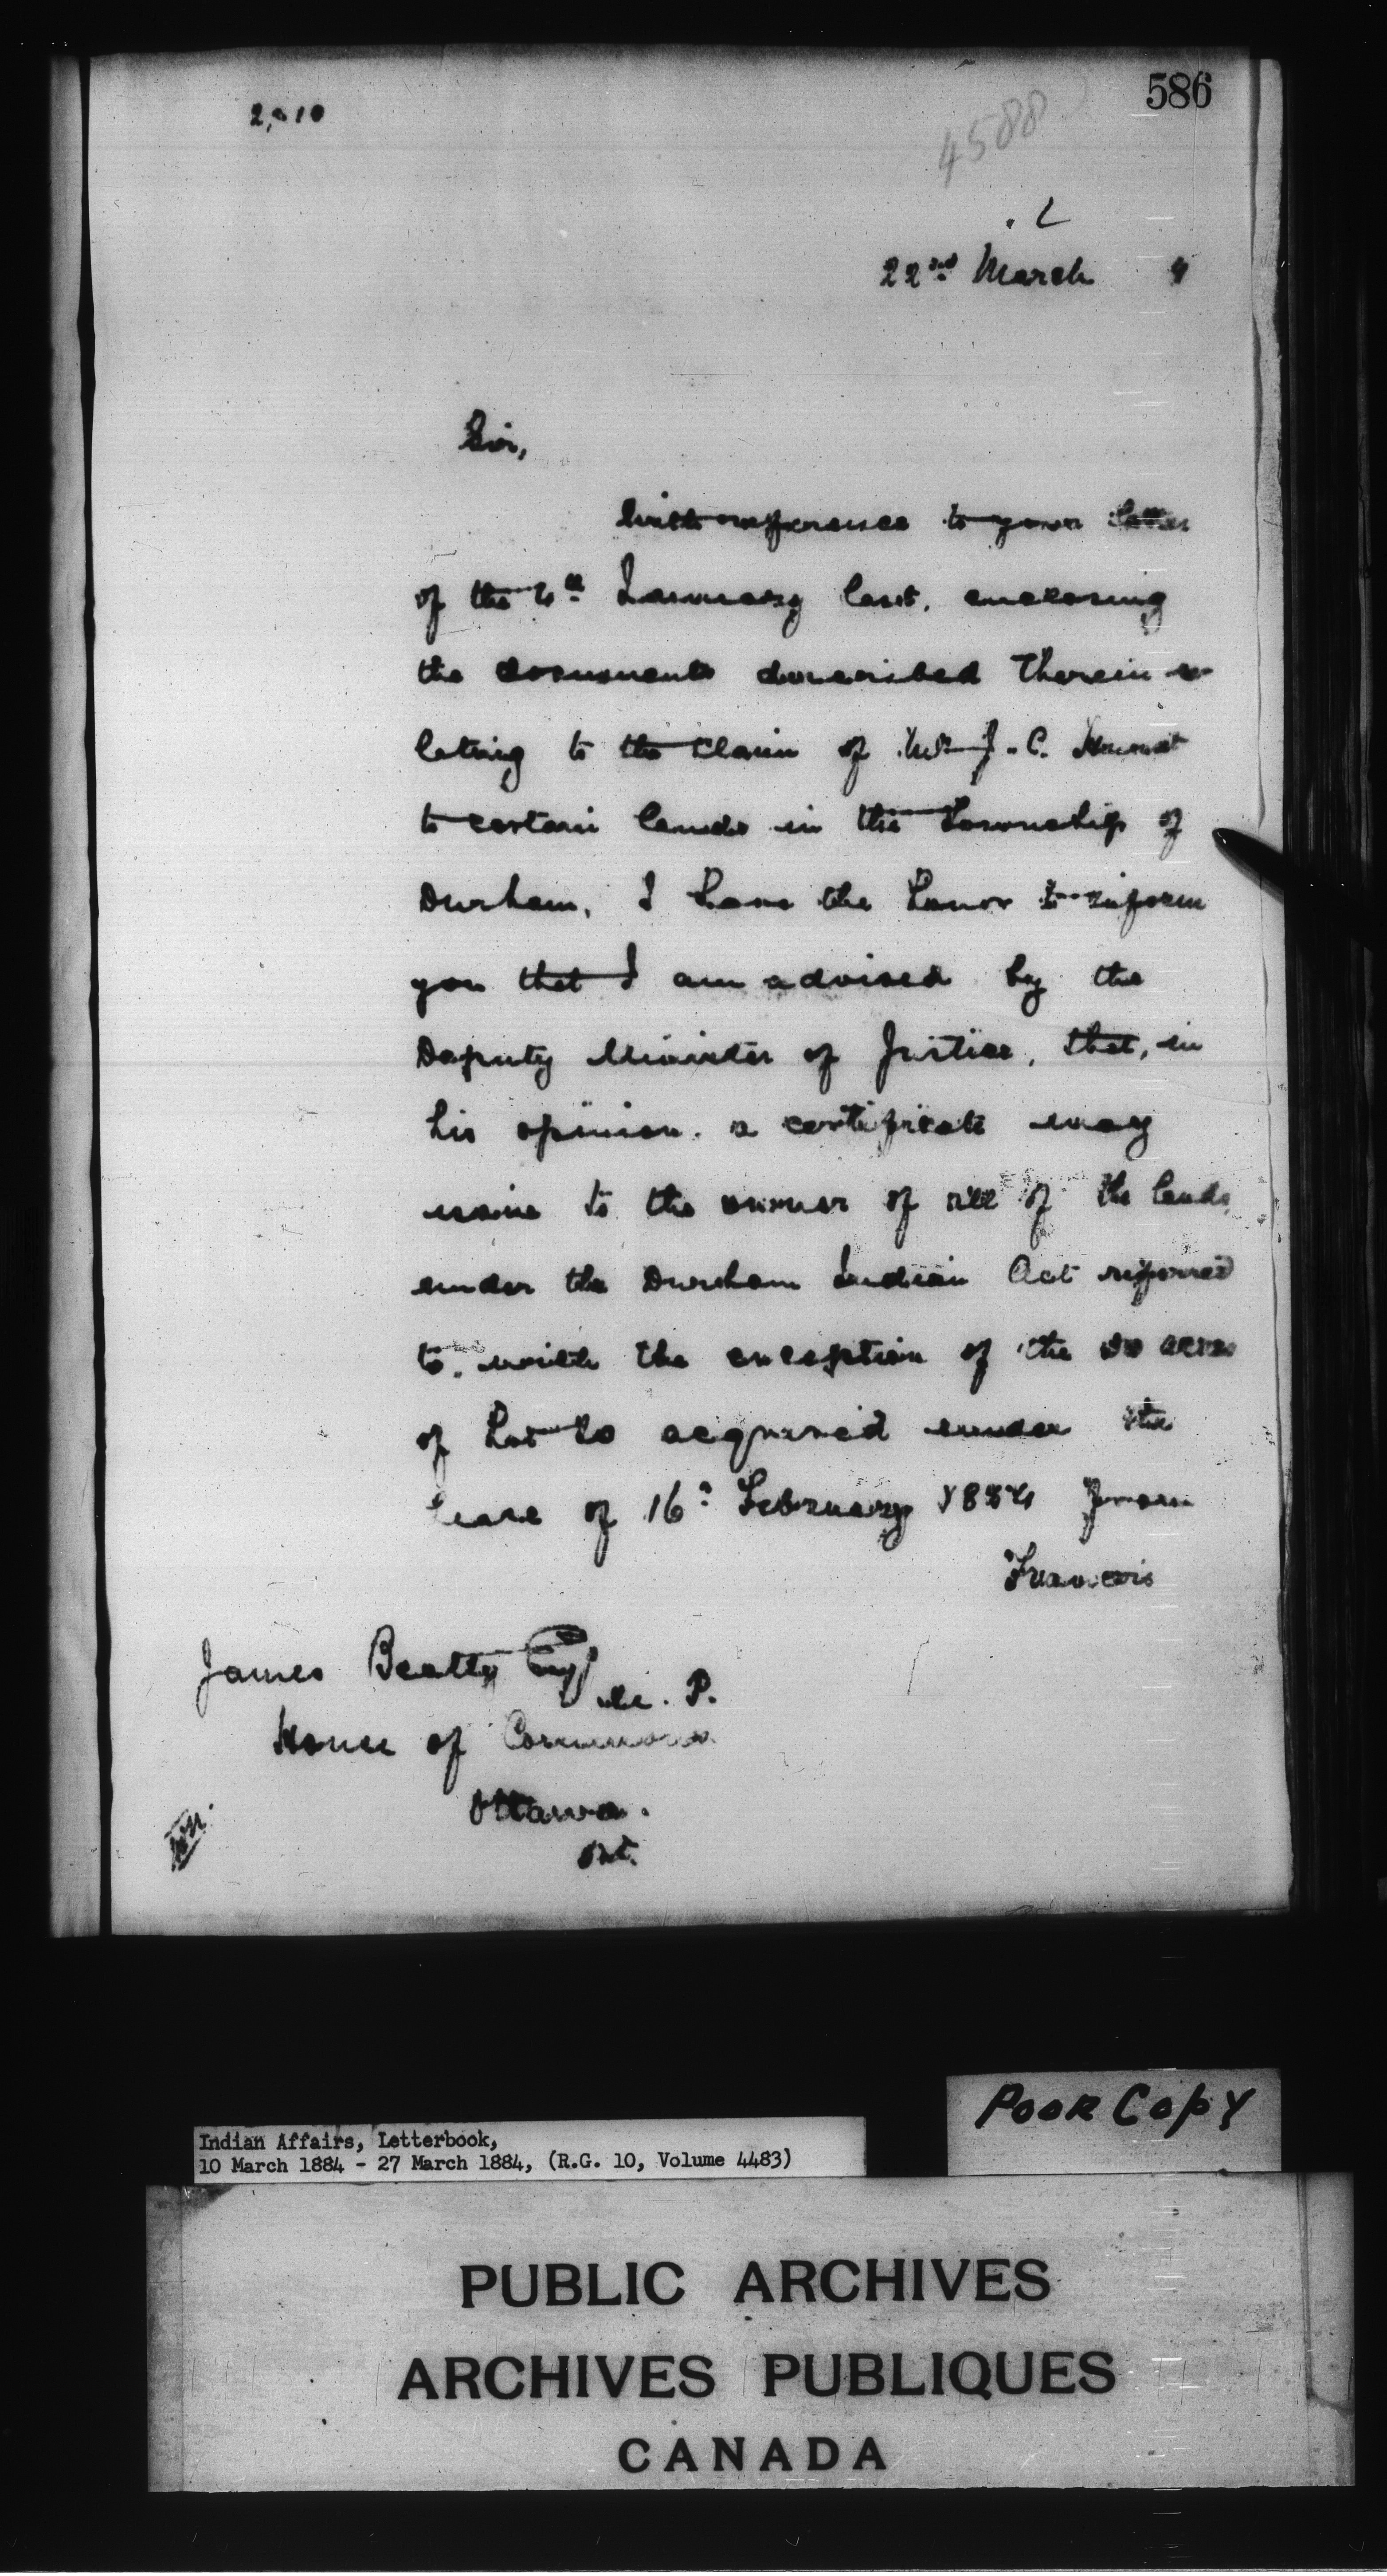 586
4588
22nd March 4
Sir,
With reference to your letter
of the 4th January last, enclosing
the documents described therein re-
lating to the claim of Mr J. C.
to certain lands in the Township of
Durham, I have the honor to inform
you that I am advised by the
Deputy Minister of Justice, that, in
his opinion, a certificate may
issue to the owner of all of the lands
under the Durham Indian Act referred
to, with the exception of the acres
of Lot acquired under the
lease of 16th February from
Francois
James Beatty Esq
M. P.
House of Commons
Ottawa.
Ont.
POOR COPY
Indian Affairs, Letterbook,
10 March 1884 - 27 March 1884, (R.G. 10, Volume 4483)
PUBLIC ARCHIVES
ARCHIVES PUBLIQUES
CANADA